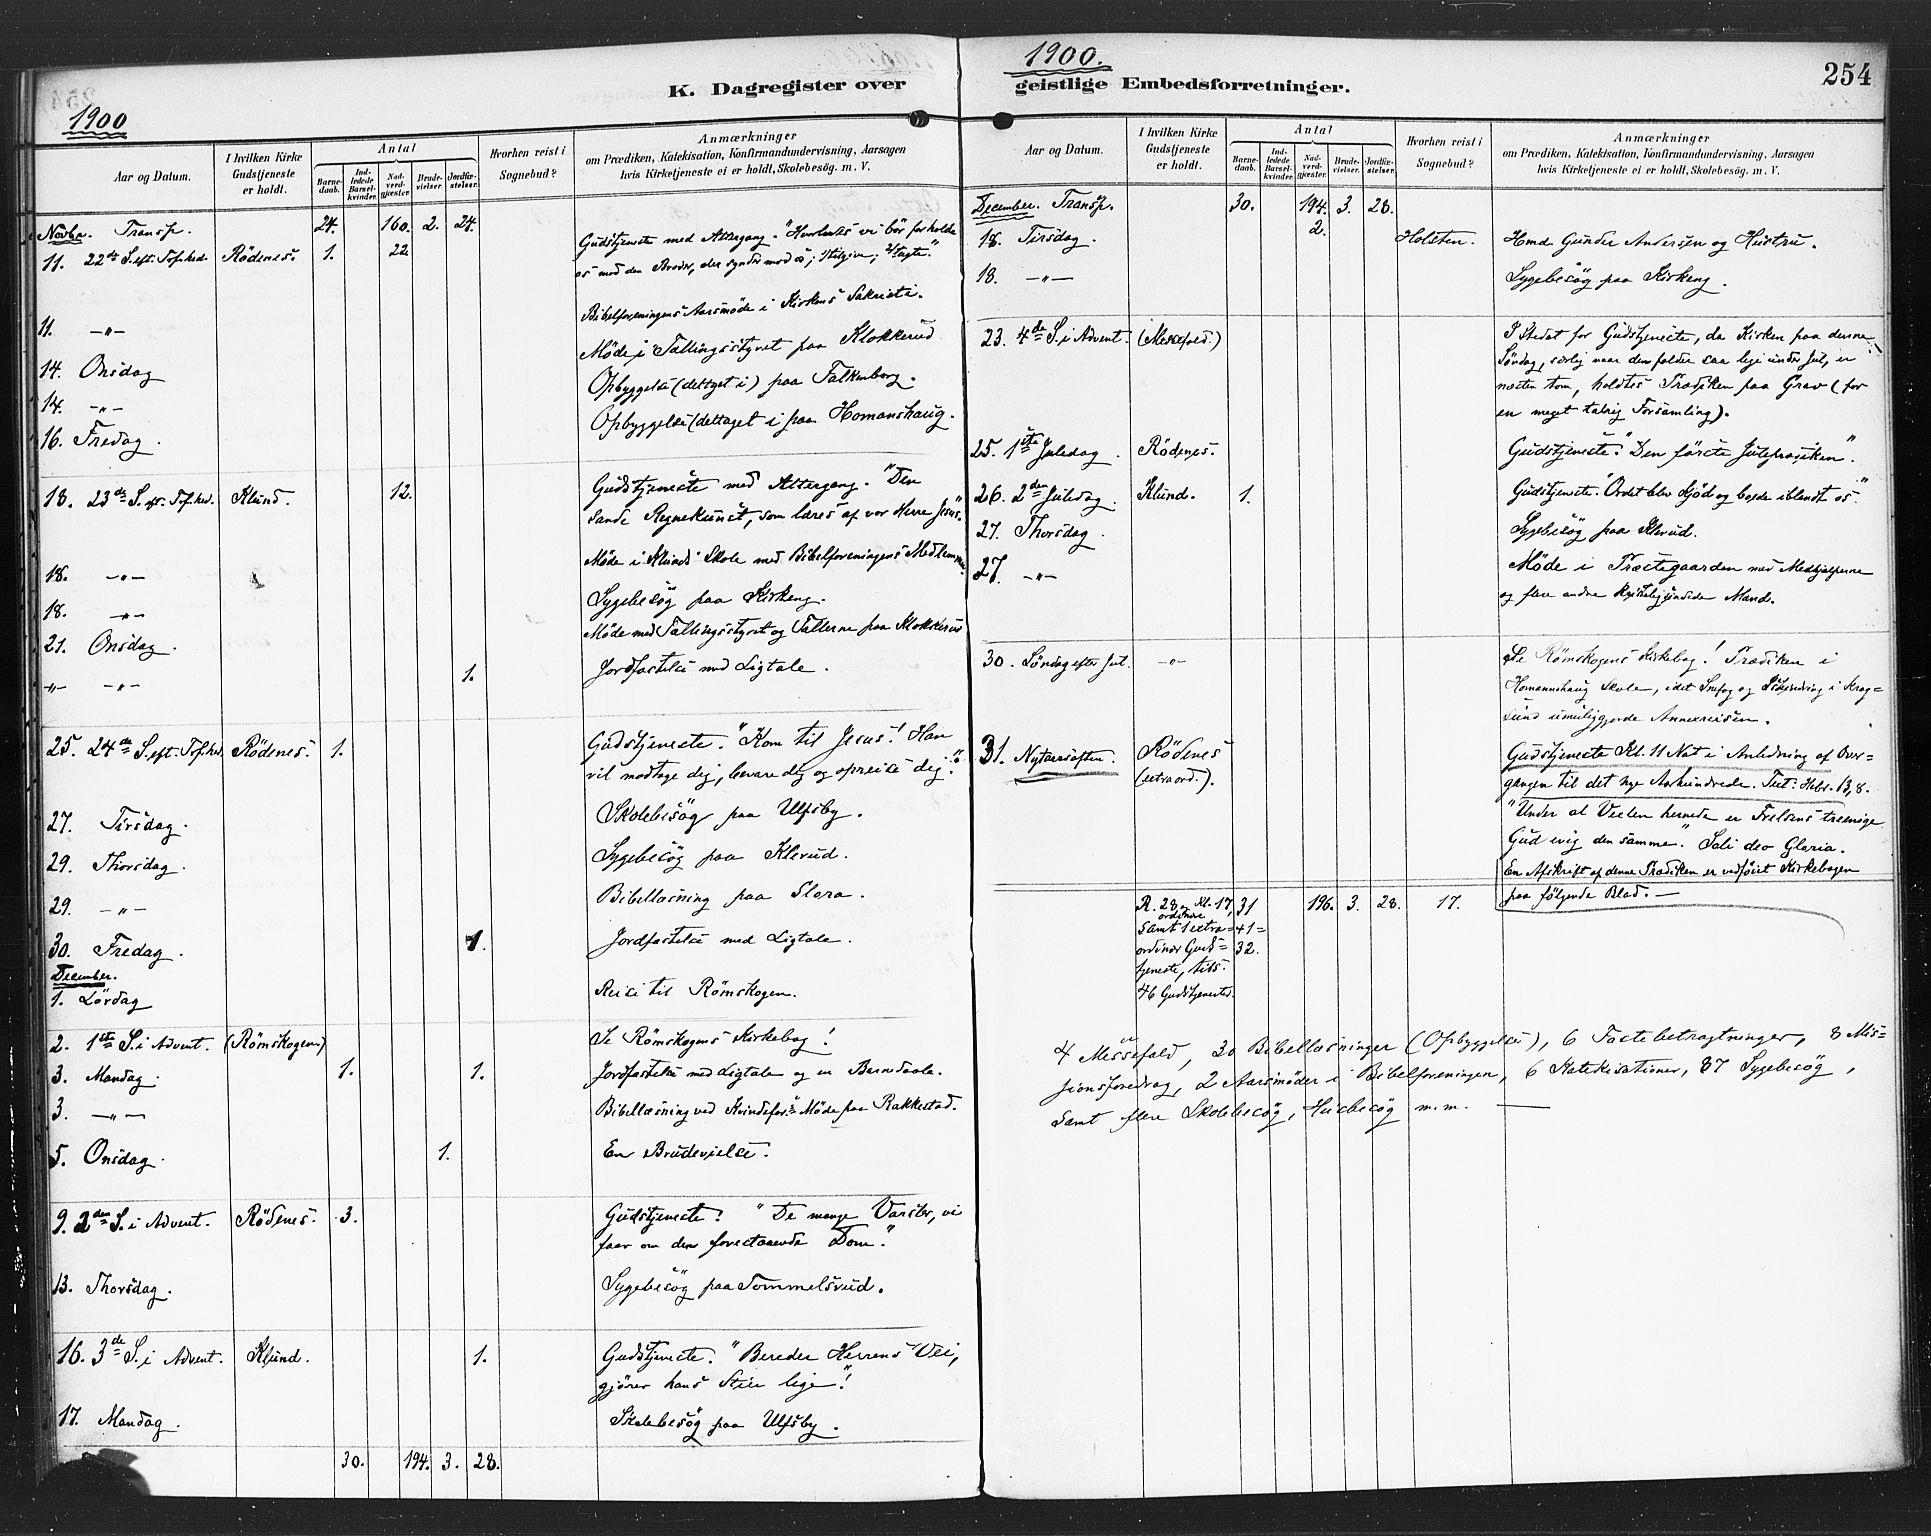 1900
K. Dagregister over
1900.
geistlige Embedsforretninger.
254
Aar og Datum.
I hvilken Kirke Gudstjeneste er holdt.
Antal
Barnedaab.
Indledede Barselkvinder.
Nadverdgjæster.
Brudevielser.
Jordfæstelser.
Hvorhen reist i Sognebud?
Anmærkninger
om Prædiken, Katekisation, Konfirmandundervisning, Aarsagen
hvis Kirketjeneste ei er holdt, Skolebesög. m. V.
Novbr. Transp. 24. 160. 2. 24.
11. 22de S. eft. Tref.hed. Rödenes. 1. 22. Gudstjeneste med Altergang. "Hvorledes vi bör forholde
os med den Broder, der synder mod os;
11. –"– Bibelforeningens Aarsmöde i Kirkens Sakristi.
14. Onsdag Möde i Tællingsstyret paa Klokkerud
14. –"– Opbyggelse (deltaget i) paa Falkenborg.
16. Fredag. Opbyggelse (deltaget i) paa Homanshaug.
18. 23de S. eft. Tref.hed. Klund. 12. Gudstjeneste med Altergang. "Den
sande Regnekunst, som læres af vor Herre Jesus."
18. –"– Möde i Klunds Skole med Bibelforeningens Medlemmer
18. –"– Sygebesög paa Kirkeng.
21. Onsdag. Möde med Tællingsstyret og Tællerne paa Klokkerud
–"– –"– 1. Jordfæstelse med Ligtale.
25. 24de S. eft. Tref.hed. Rödenes. 1. Gudstjeneste. "Kom til Jesus! Han
vil modtage dig, bevare dig og opreise dig."
27. Tirsdag. Skolebesög paa Ulfsby.
29. Thorsdag. Sygebesög paa Klerud.
29. –"– Bibellæsning paa Flora.
30. Fredag. 1. Jordfæstelse med Ligtale.
December.
1. Lördag Reise til Römskogen.
2. 1ste S. i Advent. (Römskogen) Se Römskogens Kirkebog!
3. Mandag. 1. 1. Jordfæstelse med Ligtale og en Barnedaab.
3. –"– Bibellæsning ved Kvindefor.s Möde paa Rakkestad.
5. Onsdag. 1. En Brudevielse.
9. 2den S. i Advent. Rödenes. 3. Gudstjeneste! "De mange Varsler, vi
faar om den forestaaende Dom."
13. Thorsdag. Sygebesög paa Tommelsrud.
16. 3de S. i Advent. Klund. 1. Gudstjeneste. "Bereder Herrens Vei,
gjörer hans Stier lige"!
17. Mandag. Skolebesög paa Ulfsby.
30. 194. 3. 28.
Aar og Datum.
I hvilken Kirke Gudstjeneste er holdt.
Antal
Barnedaab.
Indledede Barselkvinder.
Nadverdgjæster.
Brudevielser.
Jordfæstelser.
Hvorhen reist i Sognebud?
Anmærkninger
om Prædiken, Katekisation, Konfirmandundervisning, Aarsagen
hvis Kirketjeneste ei er holdt, Skolebesög. m. V.
December. Transp. 30. 194. 3. 28.
18. Tirsdag. 2. Holsten. Hmd. Gunder Andersen og Hustru.
18. –"– Sygebesög paa Kirkeng.
23. 4de S. i Advent. (Messefald.) I Stedet for Gudstjeneste, da Kirken paa denne
Söndag, særlig naar den falder saa lige under Jul, er
næsten tom, holdtes Prædiken paa Grav (for
en meget talrig Forsamling).
25. 1ste Juledag. Rödenes. Gudstjeneste. "Den förste Juleprædiken."
26. 2den Juledag. Klund. 1. Gudstjeneste. "Ordet blev Kjöd og boede iblandt os."
27. Thorsdag. Sygebesög paa Klerud.
27. –"– Möde i Præstegaarden med Medhjælperne
og flere andre kristeligsindede Mænd.
30. Söndag efter Jul. –"– Se Römskogens Kirkebog! Prædiken i
Homannshaug Skole, idet Snefog og i Krog-
sund umuliggjorde Annexreisen.
31. Nytaarsaften. Rödenes (extraord.). Gudstjeneste Kl. 11 Nat i Anledning af Over-
gangen til det nye Aarhundrede. Text: Hebr. 13,8.
"Under al Vexlen hernede er Frelsens treenige
Gud evig den samme." Soli deo Gloria.
En Afskrift af denne Prædiken er vedföiet Kirkebogen
paa fölgende Blad. –
R. 28, Kl. 17, 31 196. 3. 28. 17.
ordinære
samt 1 extra= 41=
ordinær Guds= 32.
tjeneste, tils.
46 Gudstjenester.
4 Messefald, 30 Bibellæsninger (Opbyggelse), 6 Fastebetragtninger, 8 Mis-
sionsforedrag, 2 Aarsmöder i Bibelforeningen, 6 Katekisationer, 87 Sygebesög,
samt flere Skolebesög, Husbesög m.m. —